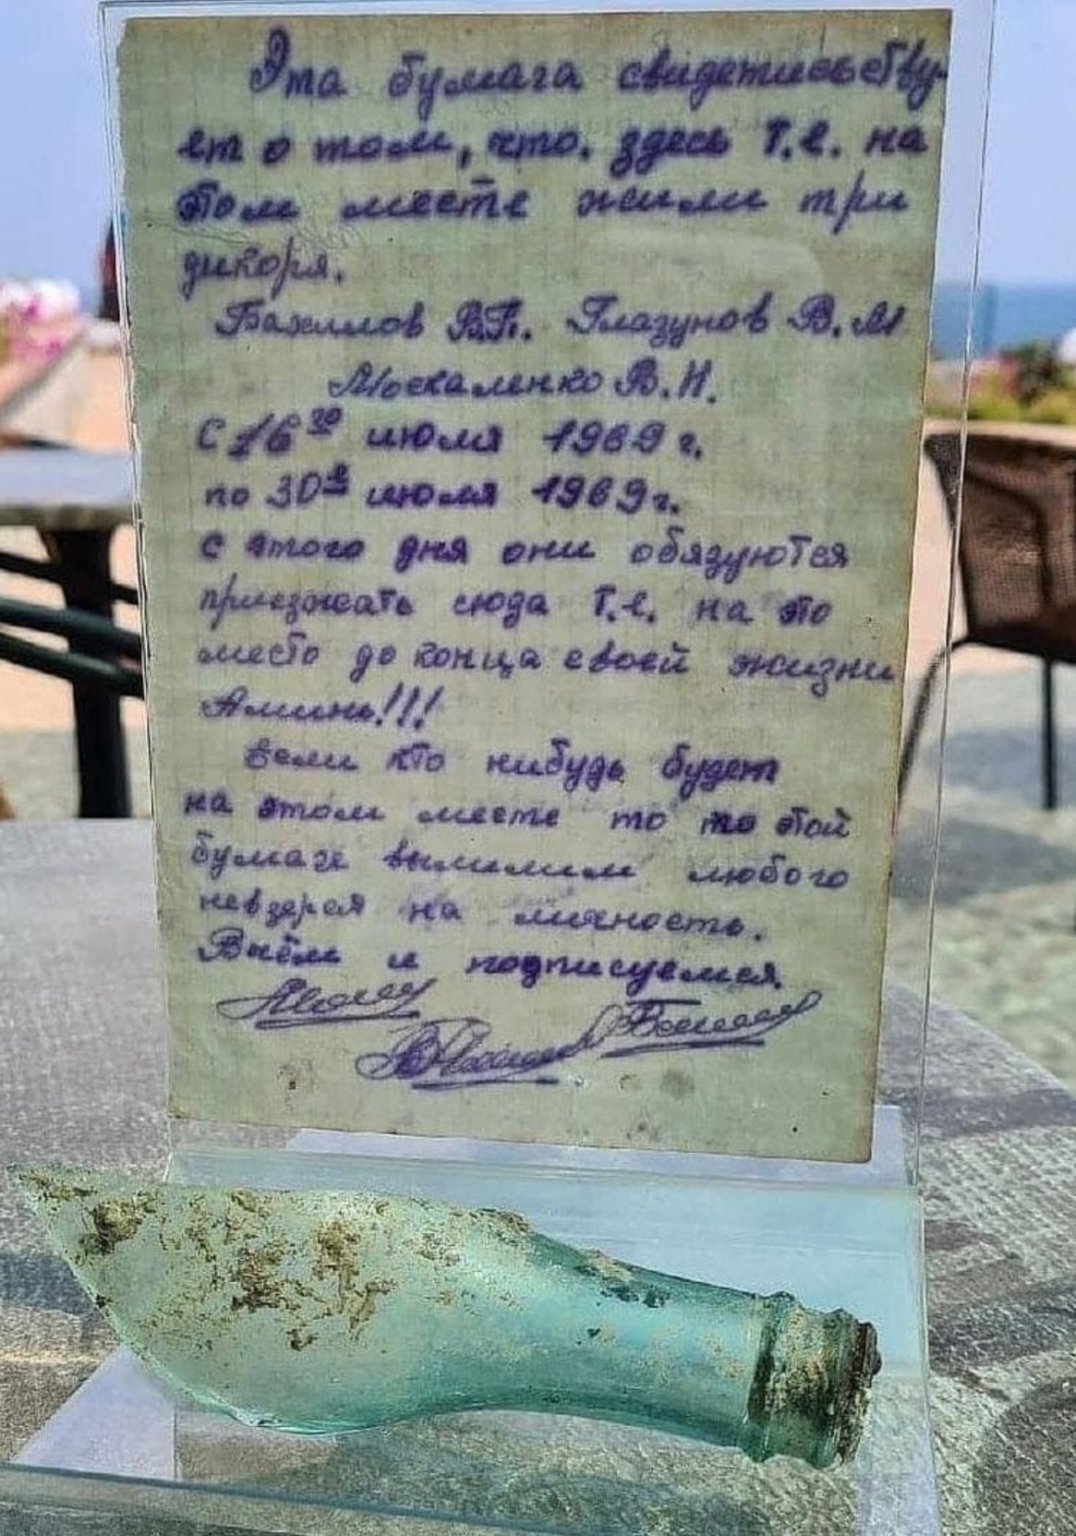 Эта бумага свидетильству-
ет о том, что. здесь т.е. на
этом месте жили три
дикоря.
Бахилов В.П. Глазунов В.М
Москаленко В.Н.
С 16го июля 1969 г.
по 30е июля 1969г.
с этого дня они обязуются
приезжать сюда т.е. на это
место до конца своей жизни
Аминь!!!
Если кто нибудь будет
на этом месте то по этой
бумаге вымилим любого
невзерая на личность.
Пьём и подписуемся.